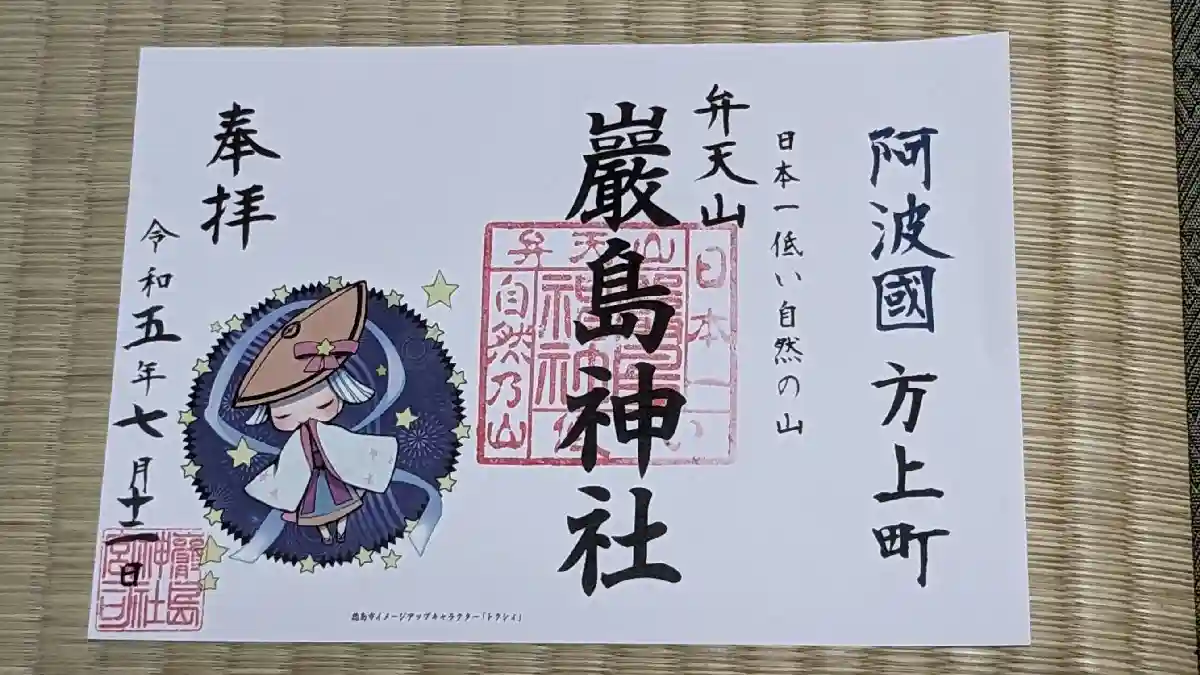 阿波國方上町
日本一低い自然の山
弁天山
巖島神社
日本一
弁天山
自然乃山
奉拝
令和五年七月十二日
徳島市イメージアップキャラクター「トクシィ」